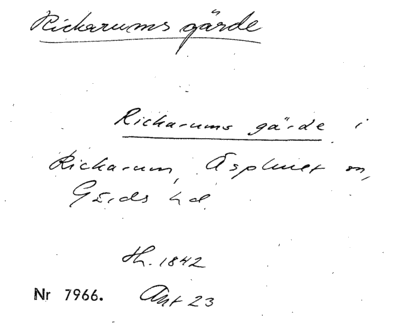 Rickarums gärde
Rickarums gärde i
Rickarum, Äsphult sn,
Gärds hd
Sk. 1842
Nr 7966. Akt 23